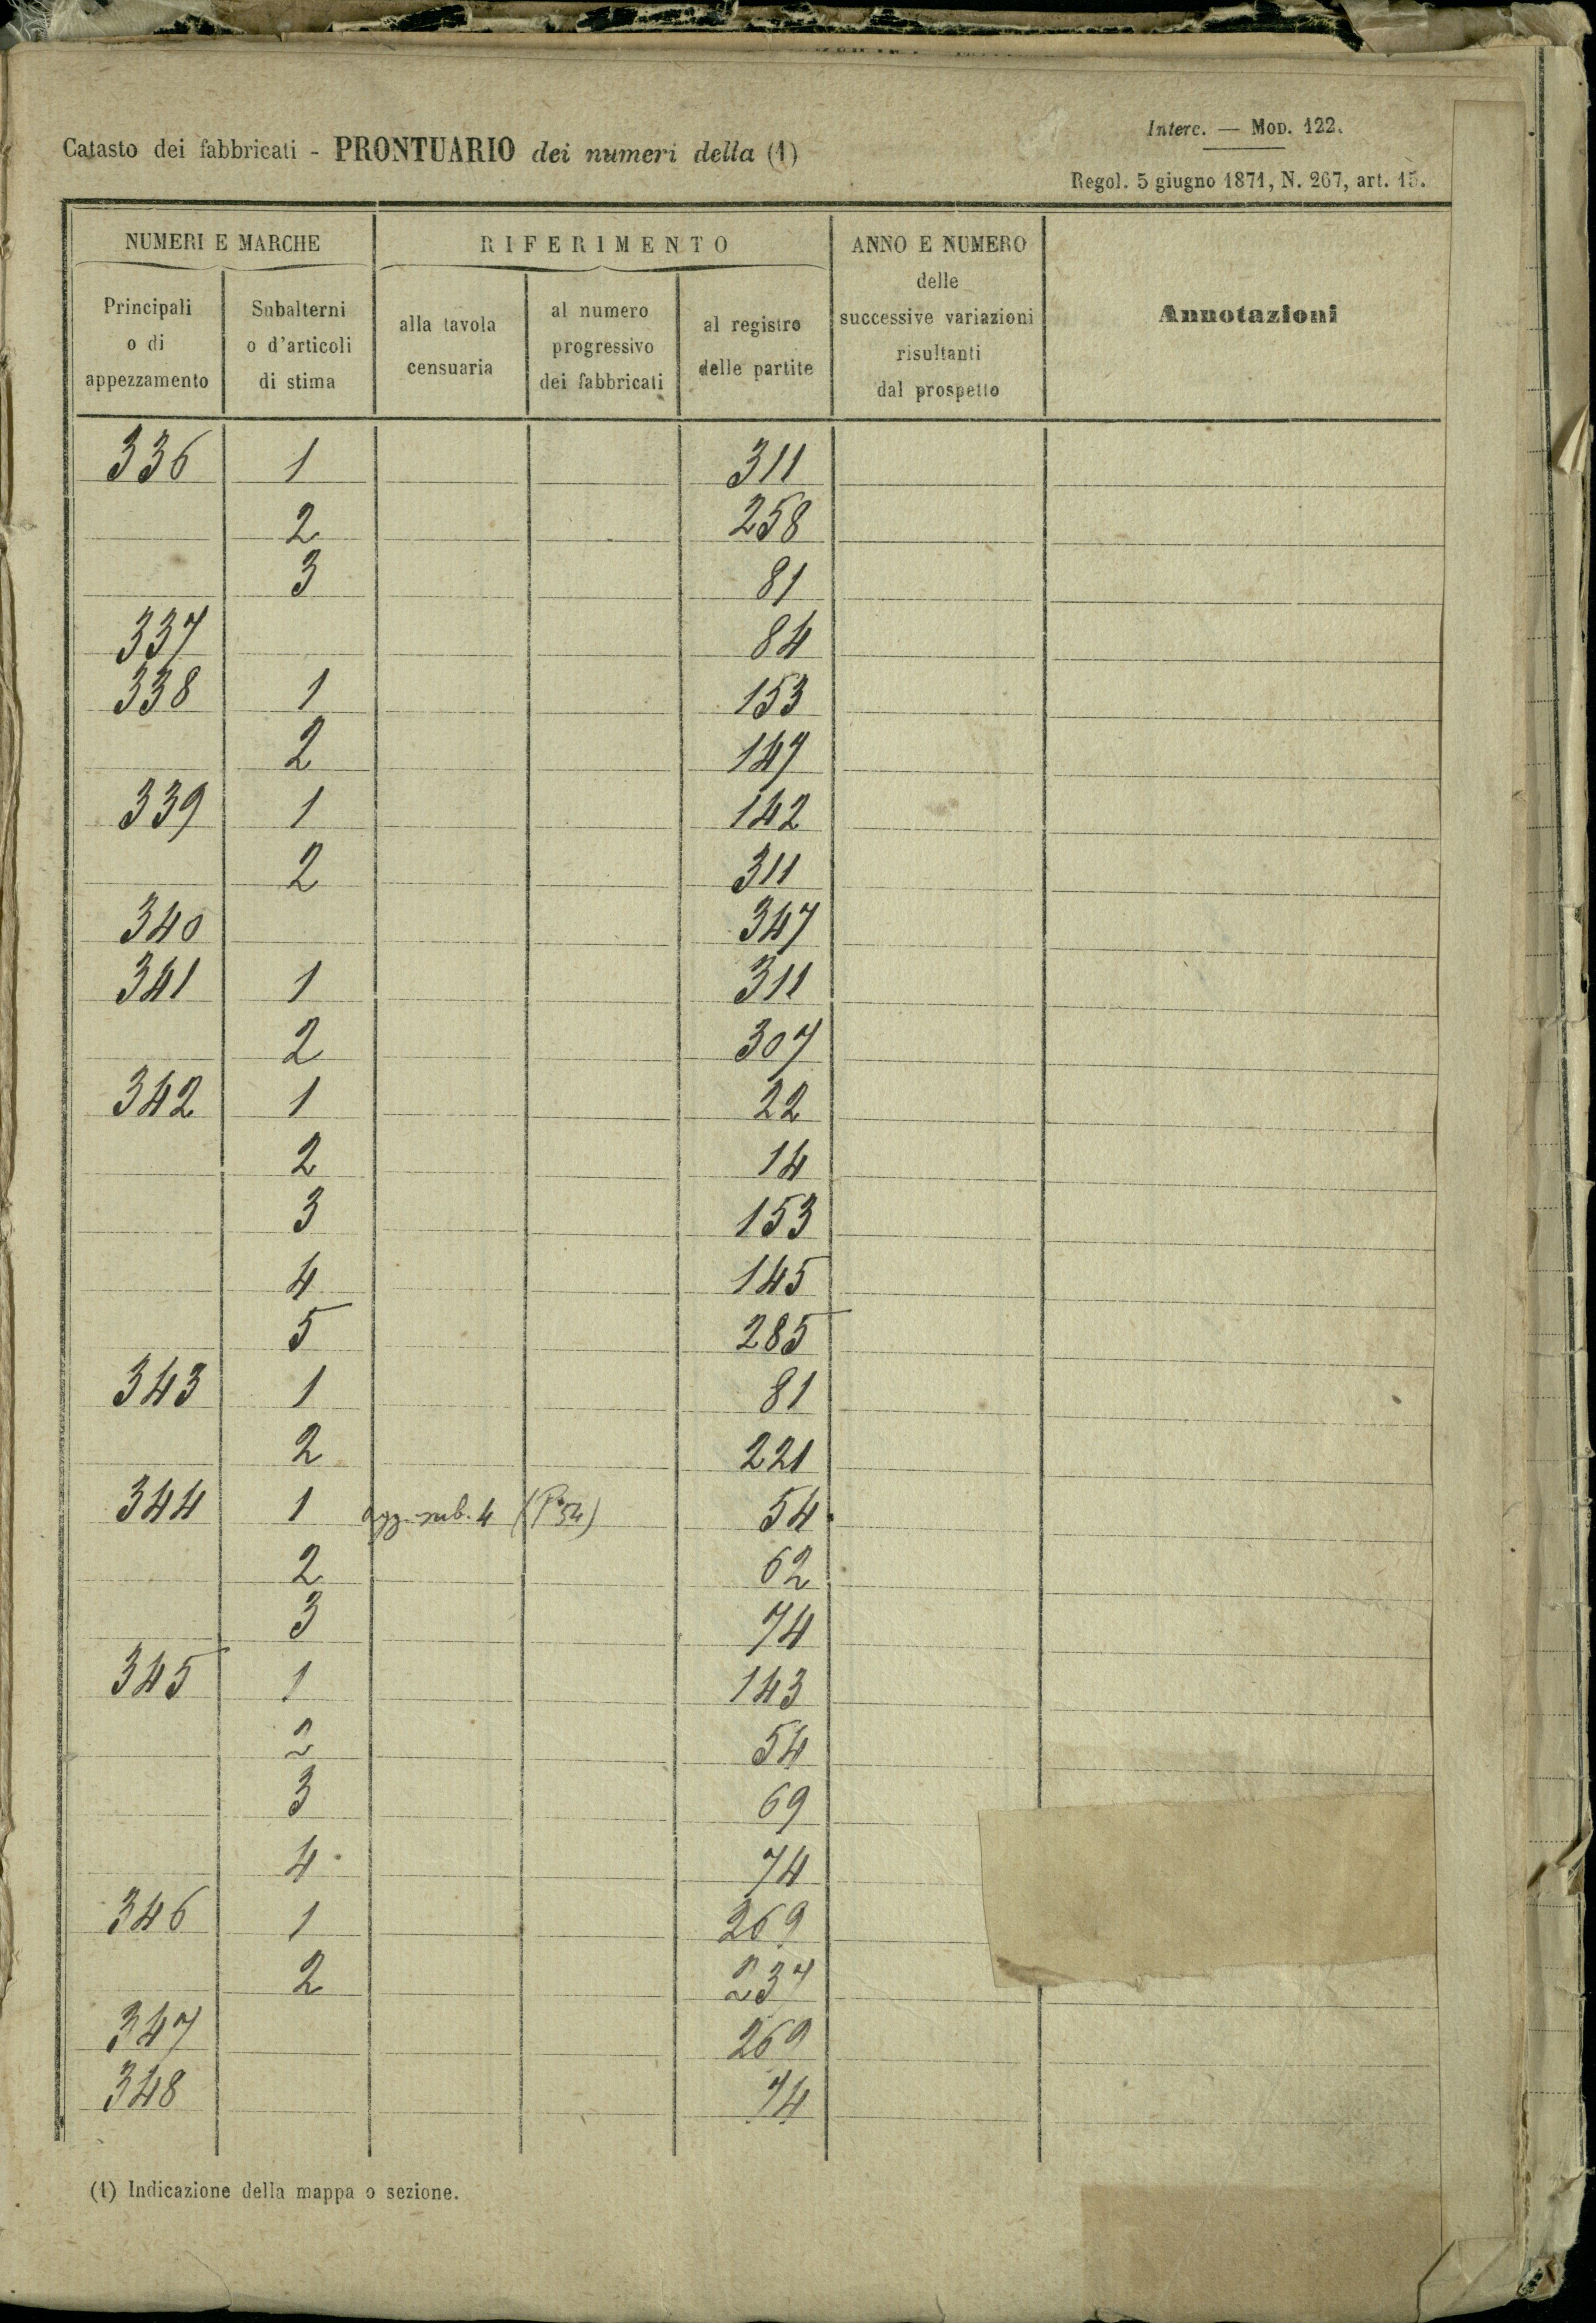 Interc. — Mod. 122.
Catasto dei fabbricati - PRONTUARIO dei numeri della (1)
Regol. 5 giugno 1871, N. 267, art. 15.
NUMERI E MARCHE
RIFERIMENTO
ANNO E NUMERO
delle
successive variazioni
risultanti
dal prospetto
Annotazioni
Principali
o di
appezzamento
Subalterni
o d'articoli
di stima
alla tavola
censuaria
al numero
progressivo
dei fabbricati
al registro
delle partite
336 1 311
2 258
3 81
337 84
338 1 153
2 147
339 1 142
2 311
340 347
341 1 311
2 307
342 1 22
2 14
3 153
4 145
5 285
343 1 81
2 221
344 1 agg. sub. 4 (P. 54) 54
2 62
3 74
345 1 143
2 54
3 69
4 74
346 1 269
2 237
347 269
348 74
(1) Indicazione della mappa o sezione.